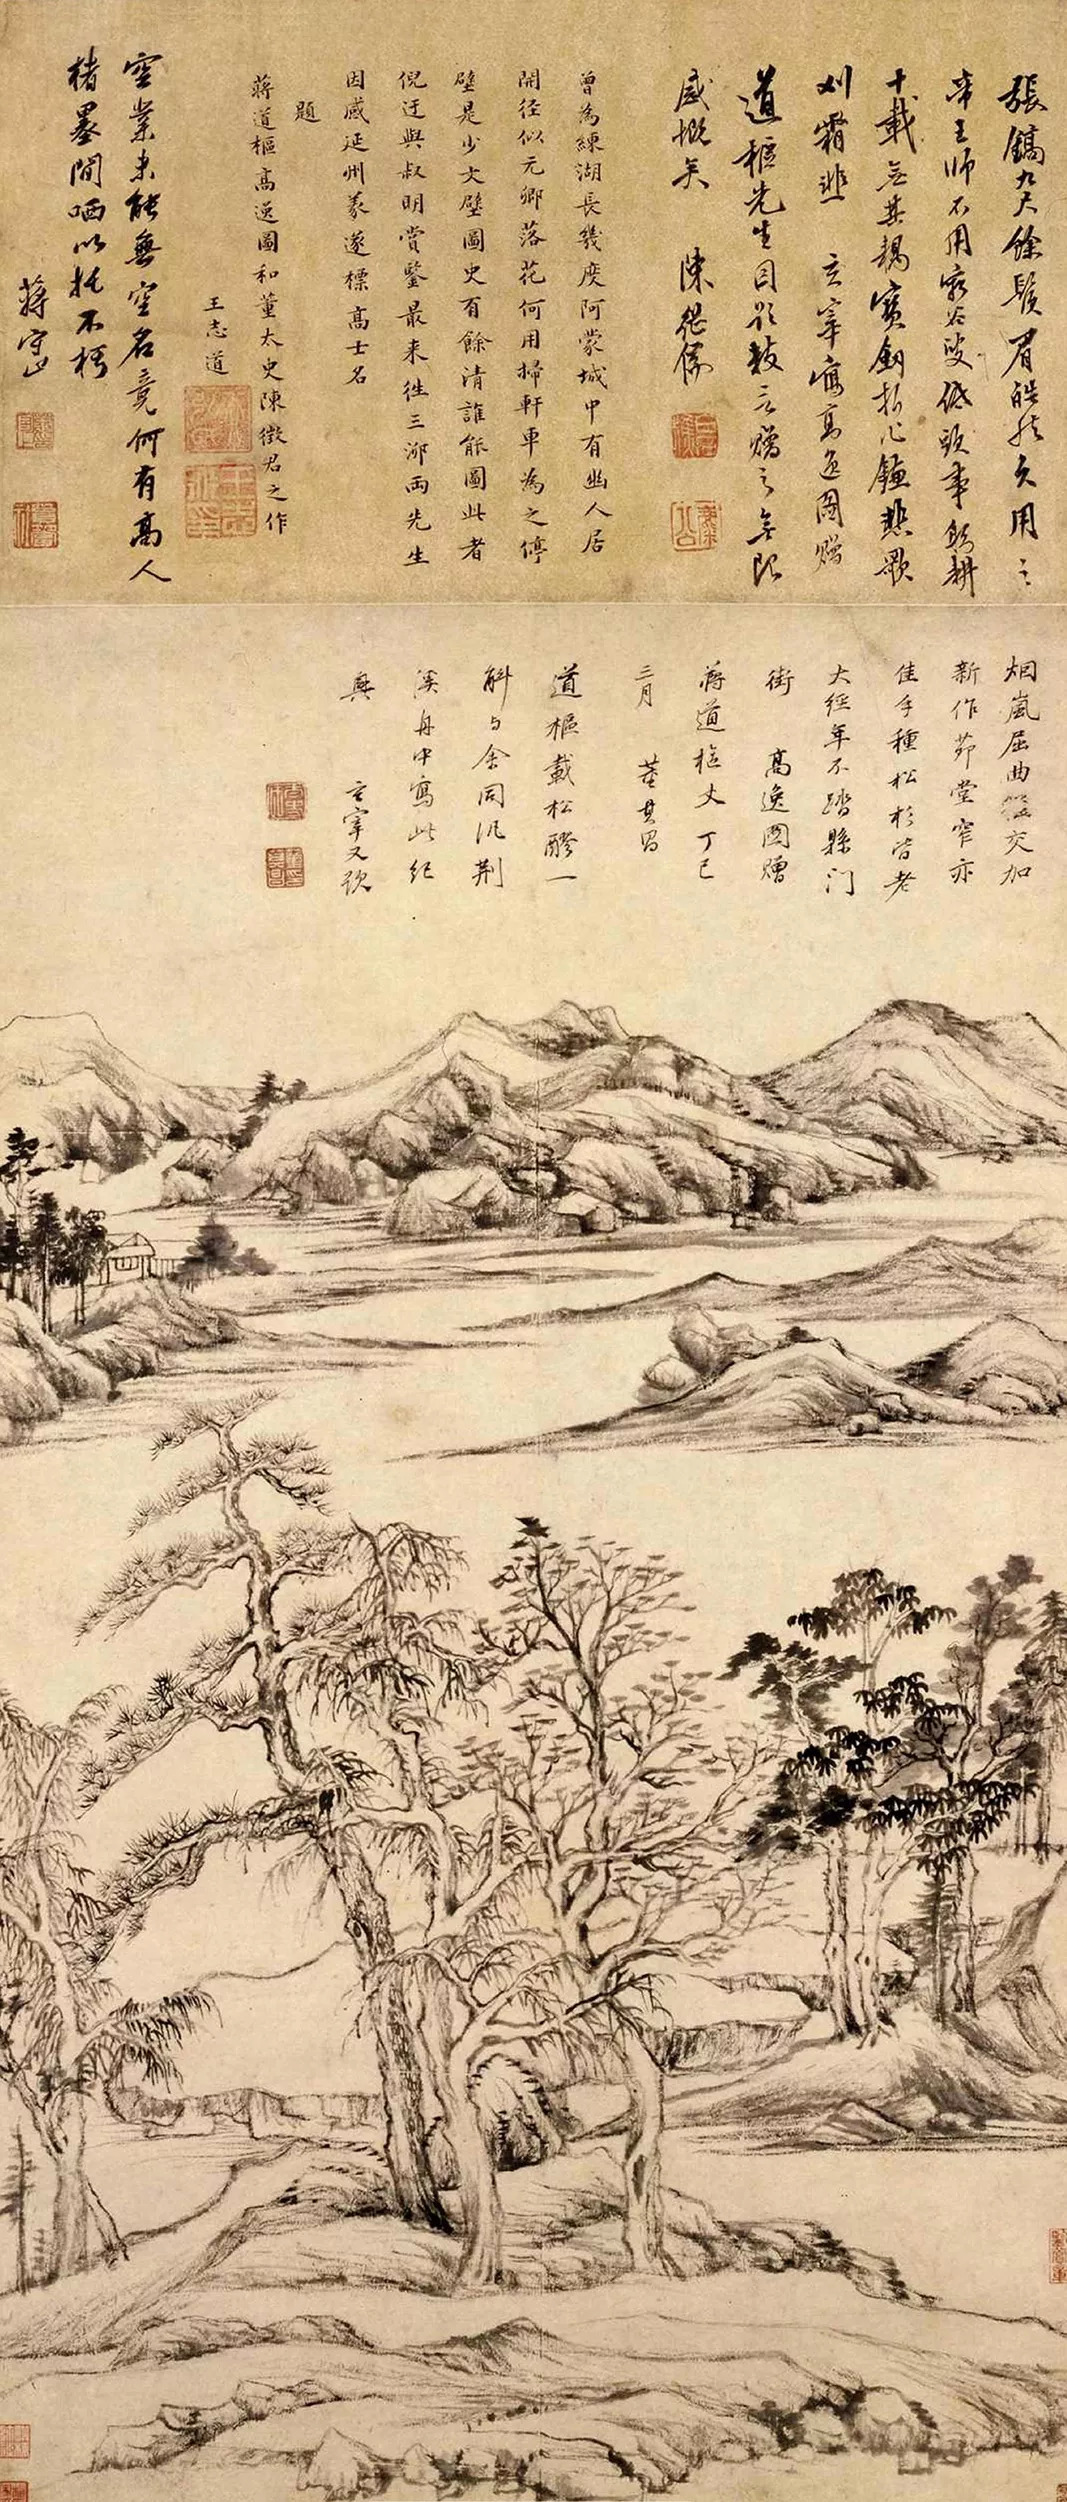 張鎬九尺餘鬚眉皓然久用之
帝王師不用窮谷叟低頭事躬耕
十載無其耦寶劍折心鐮悲歌
刈霜韭 玄宰寫高逸圖贈
道樞先生因題數言贈之無限
感慨矣 陳繼儒
曾為練湖長幾度阿蒙城中有幽人居
開徑似元卿落花何用掃軒車為之停
壁是少文壁圖史有餘清誰能圖此者
倪迂與叔明賞鑒最來往三泖両先生
因感延州義遂標高士名
題
蔣道樞高逸圖和董太史陳徵君之作
王志道
空業未能無空名竟何有高人
楮墨間哂以托不朽
蔣守止
烟嵐屈曲交加
新作茆堂窄亦
佳手種松杉皆老
大經年不踏縣門
街 高逸圖贈
蔣道樞丈 丁巳
三月 董其昌
道樞載松醪一
斛与余同汎荆
溪舟中寫此紀
興 玄宰又題